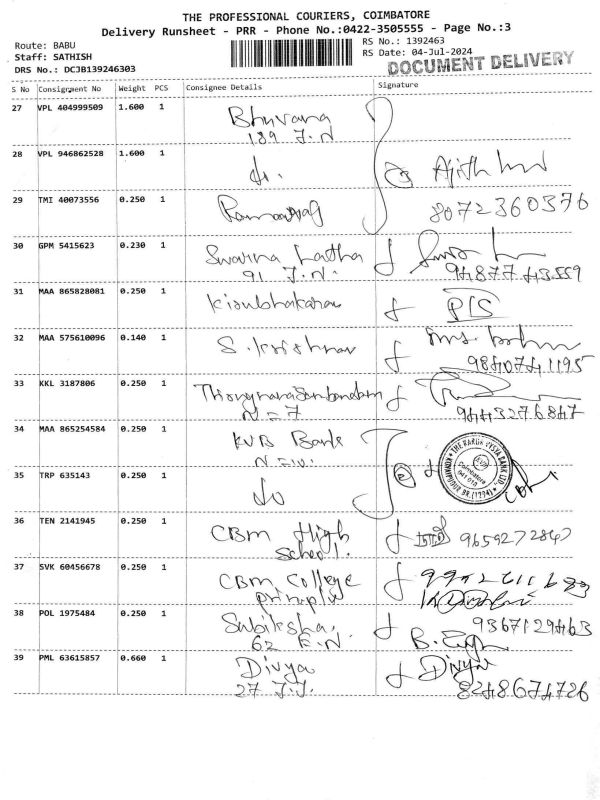 THE PROFESSIONAL COURIERS, COIMBATORE
Delivery Runsheet - PRR - Phone No.:0422-3505555 - Page No.:3
Route: BABU
Staff: SATHISH
DRS No.: DCJB139246303
RS No.: 1392463
RS Date: 04-Jul-2024
DOCUMENT DELIVERY
S No Consignment No Weight PCS Consignee Details Signature
27 VPL 404999509 1.600 1 Bhuvana
189 J.N
28 VPL 946862528 1.600 1 do.
29 TMI 40073556 0.250 1 8072360376
30 GPM 5415623 0.230 1 Swarna Latha
91 J.N. 9487743559
31 MAA 865828081 0.250 1
32 MAA 575610096 0.140 1 S. Krishnan
9840741195
33 KKL 3187806 0.250 1
N = 7 9443276847
34 MAA 865254584 0.250 1 KVB Bank
THE KARUR VYSYA BANK LTD.
Coimbatore
641 018
35 TRP 635143 0.250 1 do
36 TEN 2141945 0.250 1 CBM High
School. 9659272847
37 SVK 60456678 0.250 1 CBM College
38 POL 1975484 0.250 1 Subiksha. 9367129463
62 E.N.
39 PML 63615857 0.660 1 Divya Divya
27 J.J. 8248674726